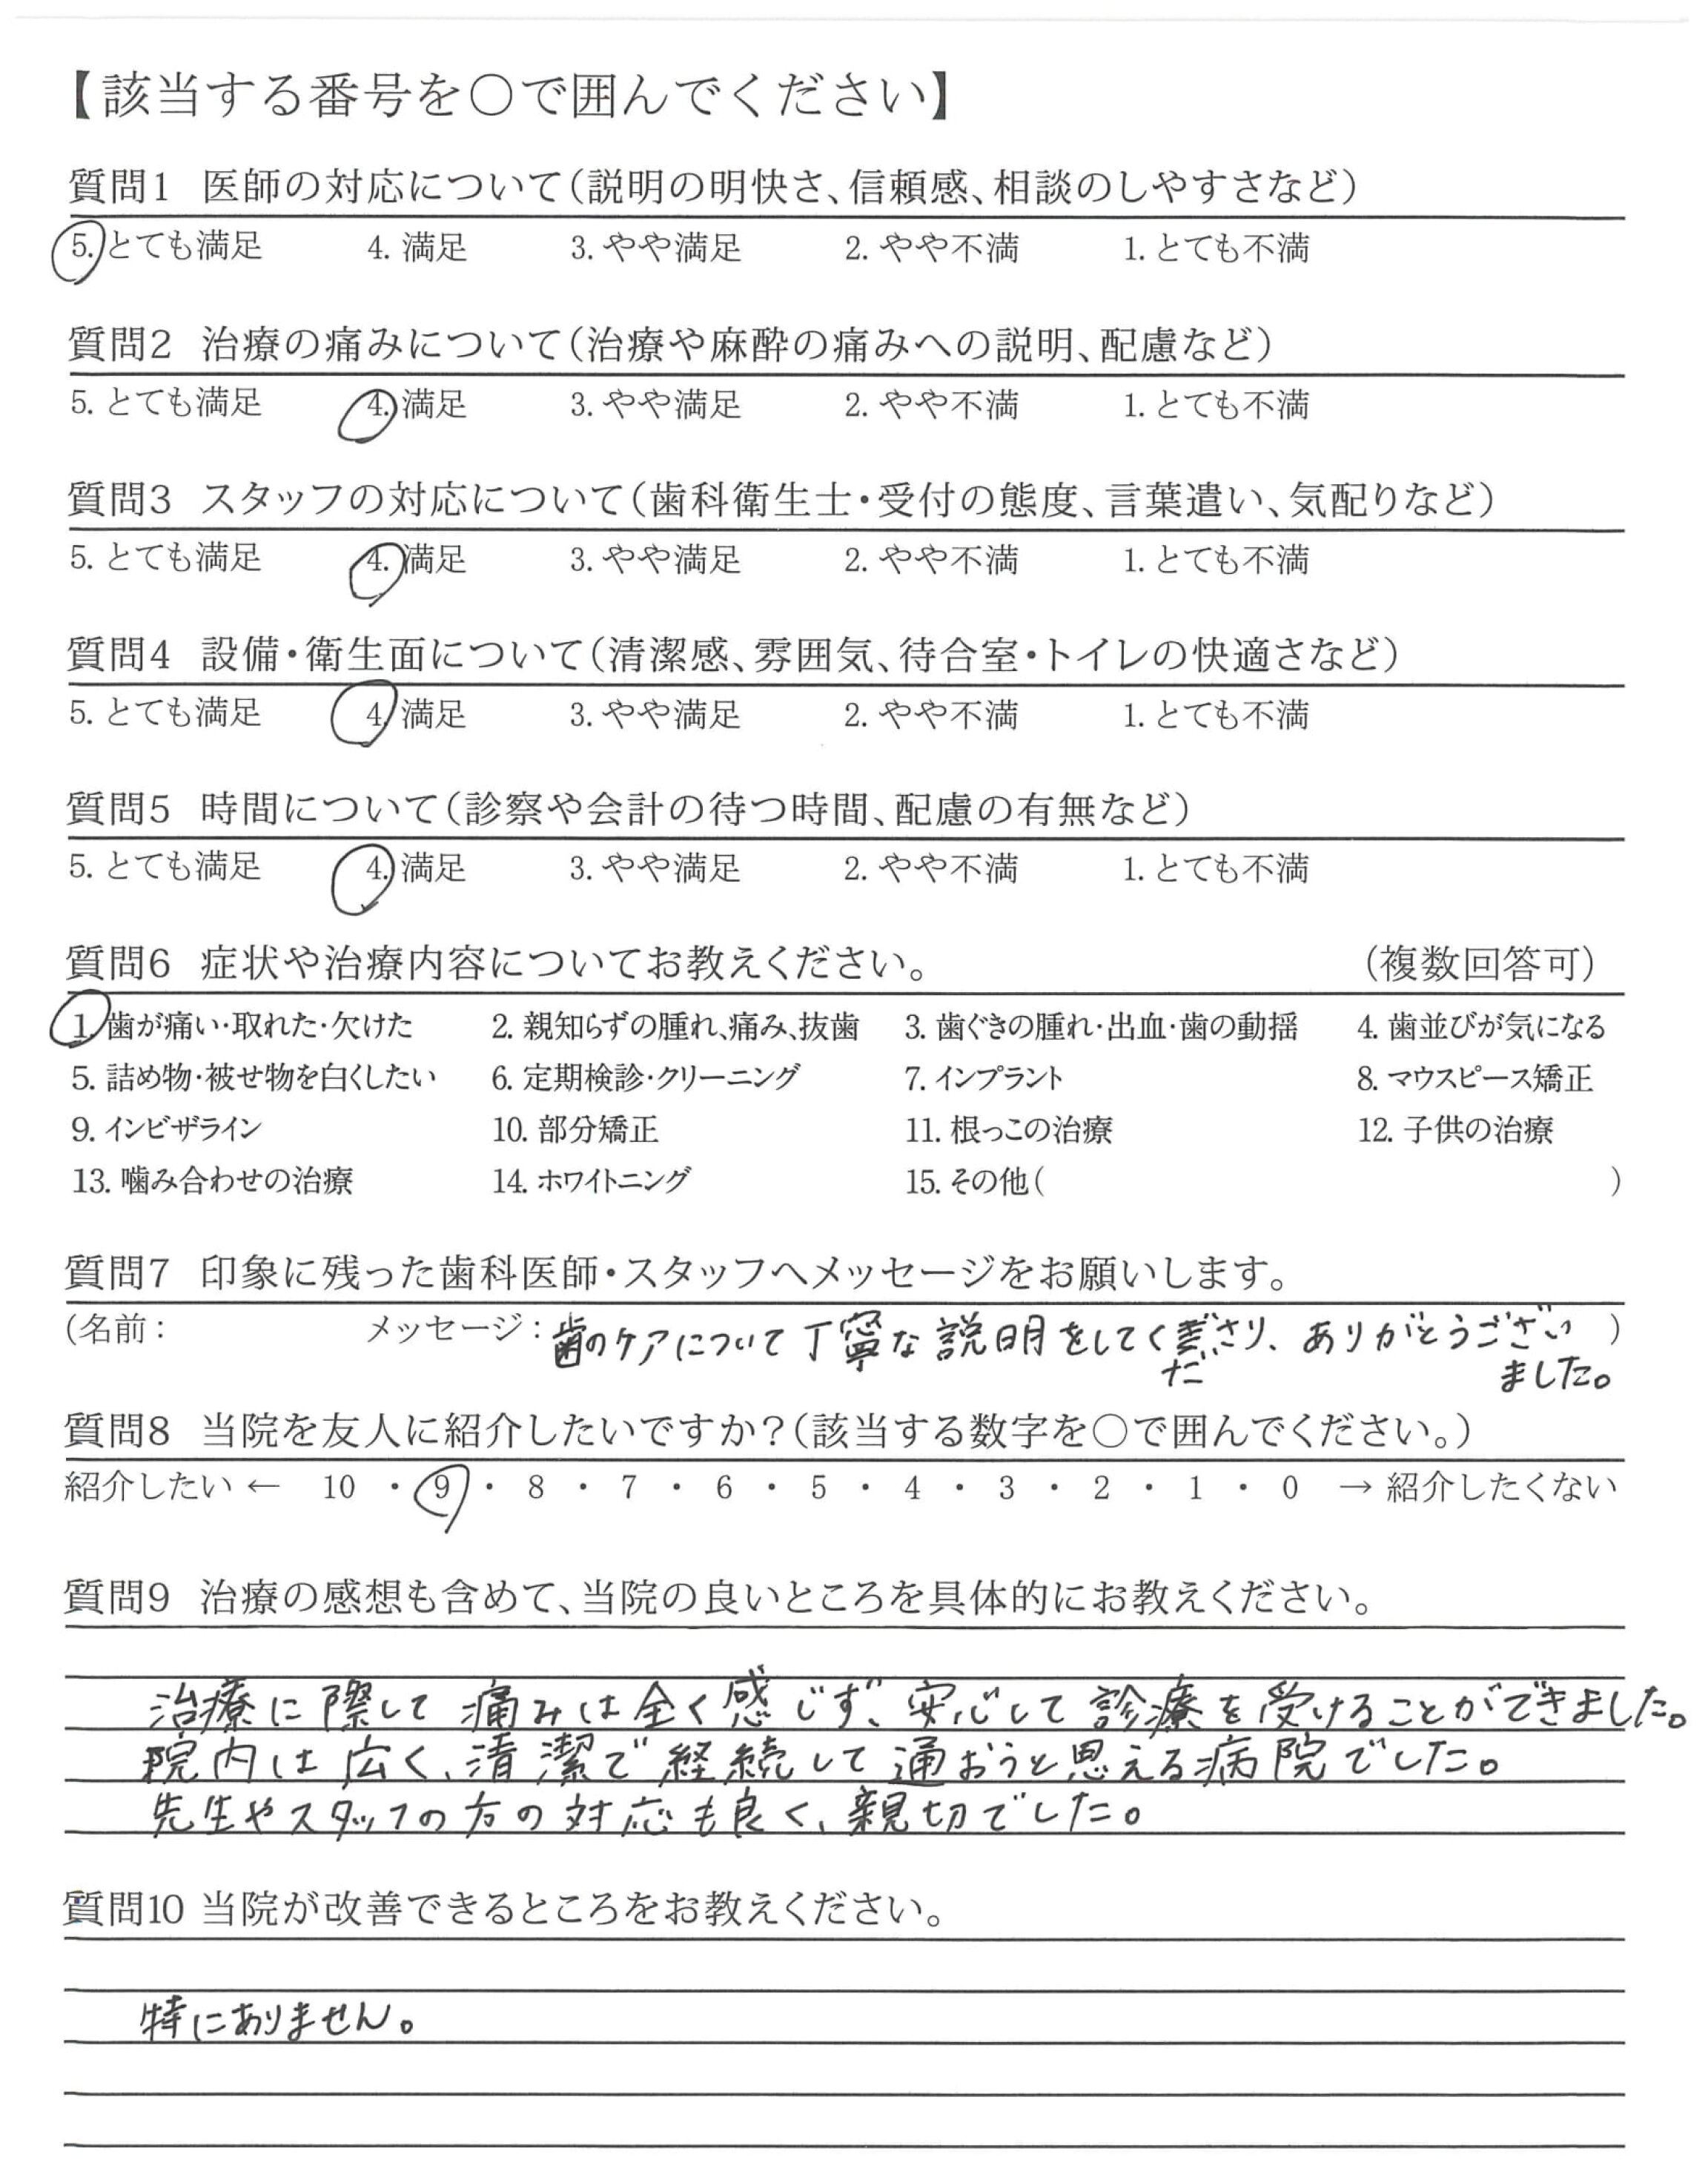 【該当する番号を○で囲んでください】
質問1 医師の対応について(説明の明快さ、信頼感、相談のしやすさなど)
5. とても満足 4. 満足 3. やや満足 2. やや不満 1. とても不満
質問2 治療の痛みについて(治療や麻酔の痛みへの説明、配慮など)
5. とても満足 4. 満足 3. やや満足 2. やや不満 1. とても不満
質問3 スタッフの対応について(歯科衛生士・受付の態度、言葉遣い、気配りなど)
5. とても満足 4. 満足 3. やや満足 2. やや不満 1. とても不満
質問4 設備・衛生面について(清潔感、雰囲気、待合室・トイレの快適さなど)
5. とても満足 4. 満足 3. やや満足 2. やや不満 1. とても不満
質問5 時間について(診察や会計の待つ時間、配慮の有無など)
5. とても満足 4. 満足 3. やや満足 2. やや不満 1. とても不満
質問6 症状や治療内容についてお教えください。 (複数回答可)
1. 歯が痛い・取れた・欠けた 2. 親知らずの腫れ、痛み、抜歯 3. 歯ぐきの腫れ・出血・歯の動揺 4. 歯並びが気になる
5. 詰め物・被せ物を白くしたい 6. 定期検診・クリーニング 7. インプラント 8. マウスピース矯正
9. インビザライン 10. 部分矯正 11. 根っこの治療 12. 子供の治療
13. 噛み合わせの治療 14. ホワイトニング 15. その他( )
質問7 印象に残った歯科医師・スタッフへメッセージをお願いします。
(名前: メッセージ: 歯のケアについて丁寧な説明をしてくださり、ありがとうござい )
ました。
質問8 当院を友人に紹介したいですか?(該当する数字を○で囲んでください。)
紹介したい ← 10 ・ 9 ・ 8 ・ 7 ・ 6 ・ 5 ・ 4 ・ 3 ・ 2 ・ 1 ・ 0 → 紹介したくない
質問9 治療の感想も含めて、当院の良いところを具体的にお教えください。
治療に際して痛みは全く感じず、安心して診療を受けることができました。
院内は広く、清潔で経続して通おうと思える病院でした。
先生やスタッフの方の対応も良く、親切でした。
質問10 当院が改善できるところをお教えください。
特にありません。